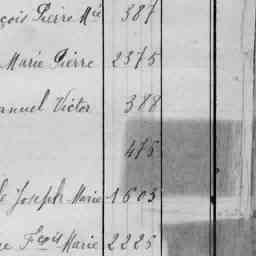 çois Pierre Mie 387
Marie Pierre 2375
anuel Victor 388
475
Joseph Marie 1603
Fçois Marie 2225